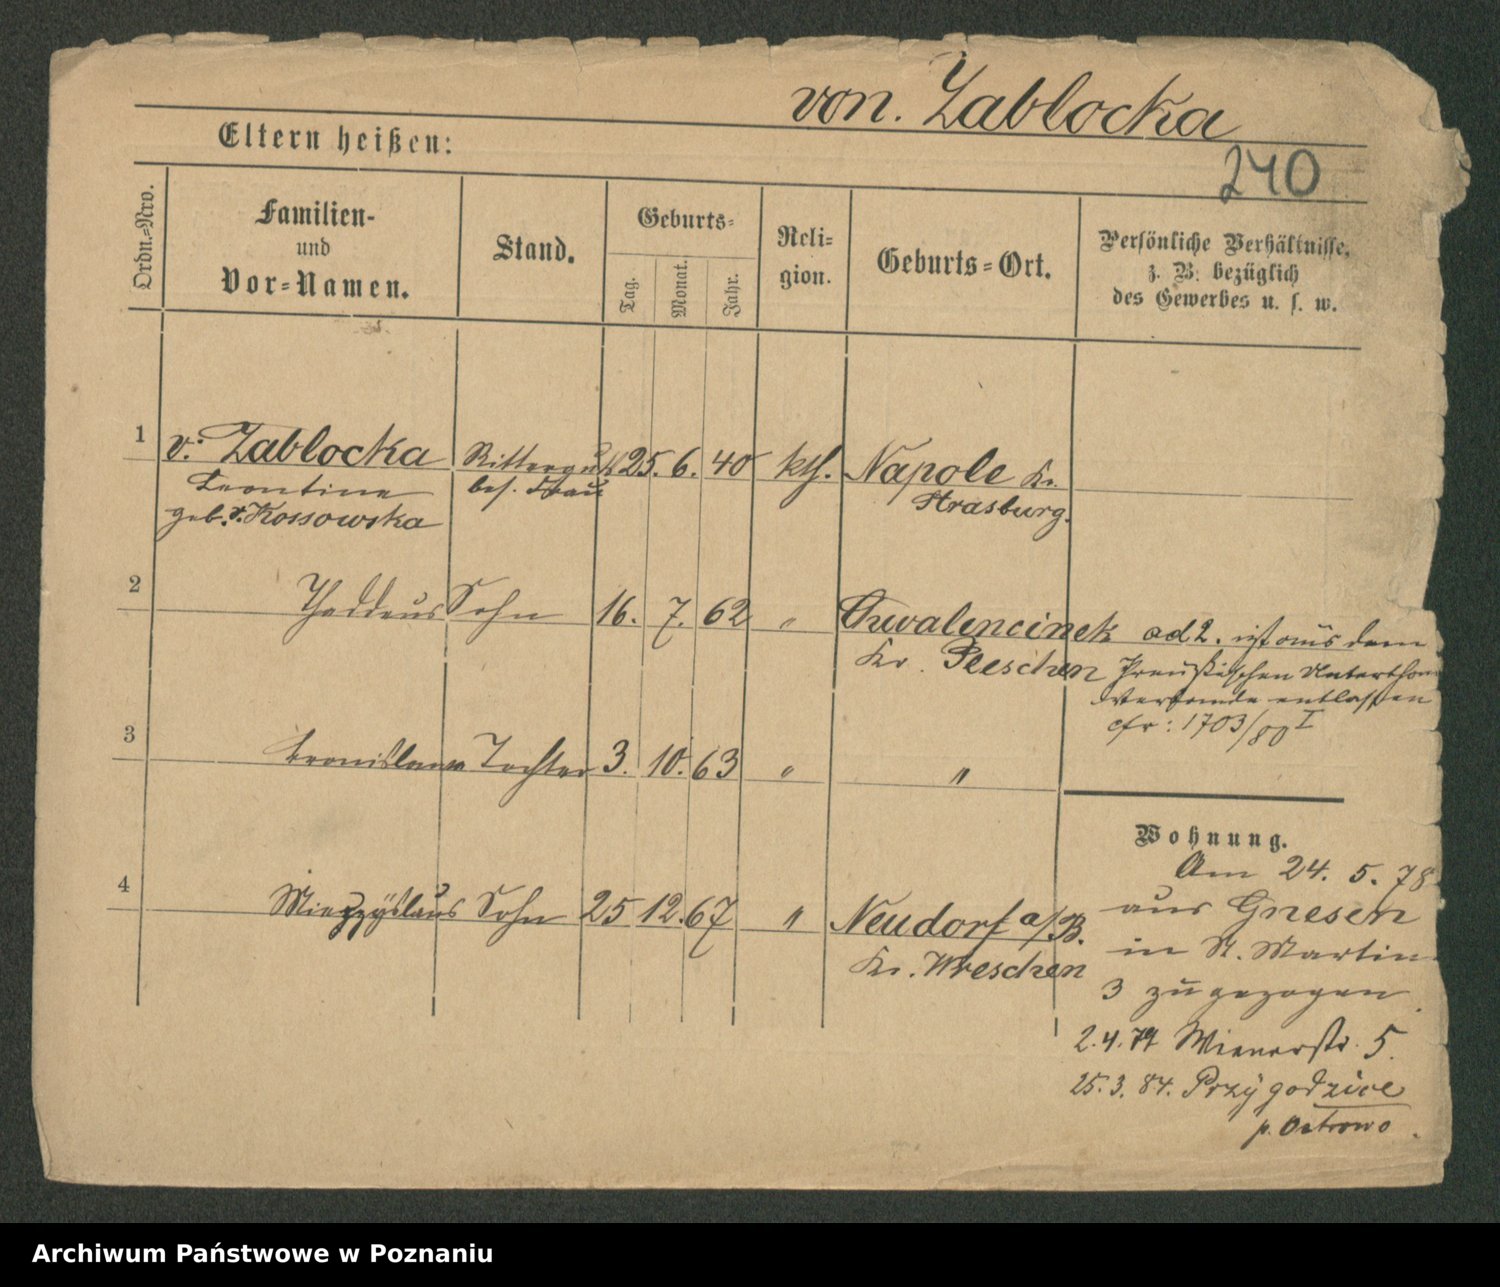 von. Zablocka
Eltern heißen:
240
Ordn.-Nro.
Familien-
und
Vor-Namen.
Stand.
Geburts-
Tag.
Monat.
Jahr.
Reli-
gion.
Geburts-Ort.
Persönliche Verhältnisse,
z. B. bezüglich
des Gewerbes u. s. w.
1 v. Zablocka Ritterguts 25. 6. 40 kth. Napole Kr.
Leontine bes. Frau Strasburg.
geb. v. Kossowska
2 Thaddeus Sohn 16. 7. 62 " Chwalencinek ad 2. ist aus dem
Kr. Pleschen Preußischen Unterthan
Verbande entlassen
cfr: 1703/80 I
3 Bronislawa Tochter 3. 10. 63 " "
Wohnung.
Am 24. 5. 78
4 Mieczyslaus Sohn 25 12. 67 " Neudorf a/B. aus Gnesen
Kr. Wreschen in St. Martin
3 zugezogen
2. 4. 79 Wienerstr. 5.
25. 3. 84. Przygodzice
p. Ostrowo.
Archiwum Państwowe w Poznaniu